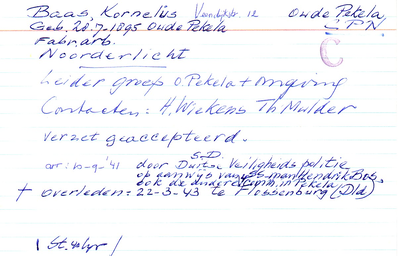 Baas, Kornelius Veendijkstr. 12 Oude Pekela
Geb. 28-7-1895 Oude Pekela C.P.N.
Fabr. arb.
Noorderlicht C
Leider groep O. Pekela + omgeving
Contacten: H. Wiekens Th Mulder
Verzet geaccepteerd.
S.D.
arr: 10-9-'41 door Duitse Veiligheids politie
op aanwijs van SS-man Hendrik Bos,
ook de andere Comm. in Pekela
+ overleden: 22-3-43 te Flossenburg (Dld)